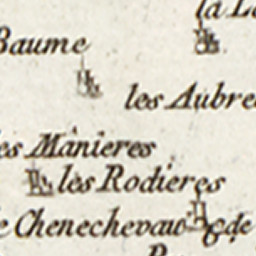 la L
Baume
les Aubre
es Manieres
les Rodieres
e Chenechevaux
de